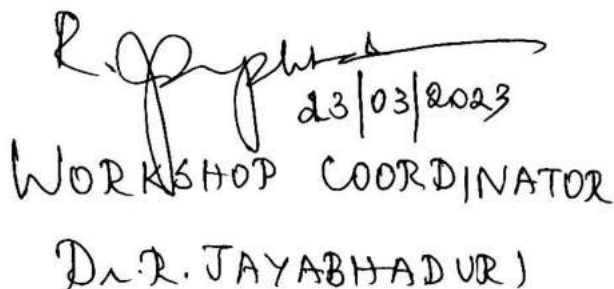 R.
23/03/2023
WORKSHOP COORDINATOR
Dr. R. JAYABHADURI